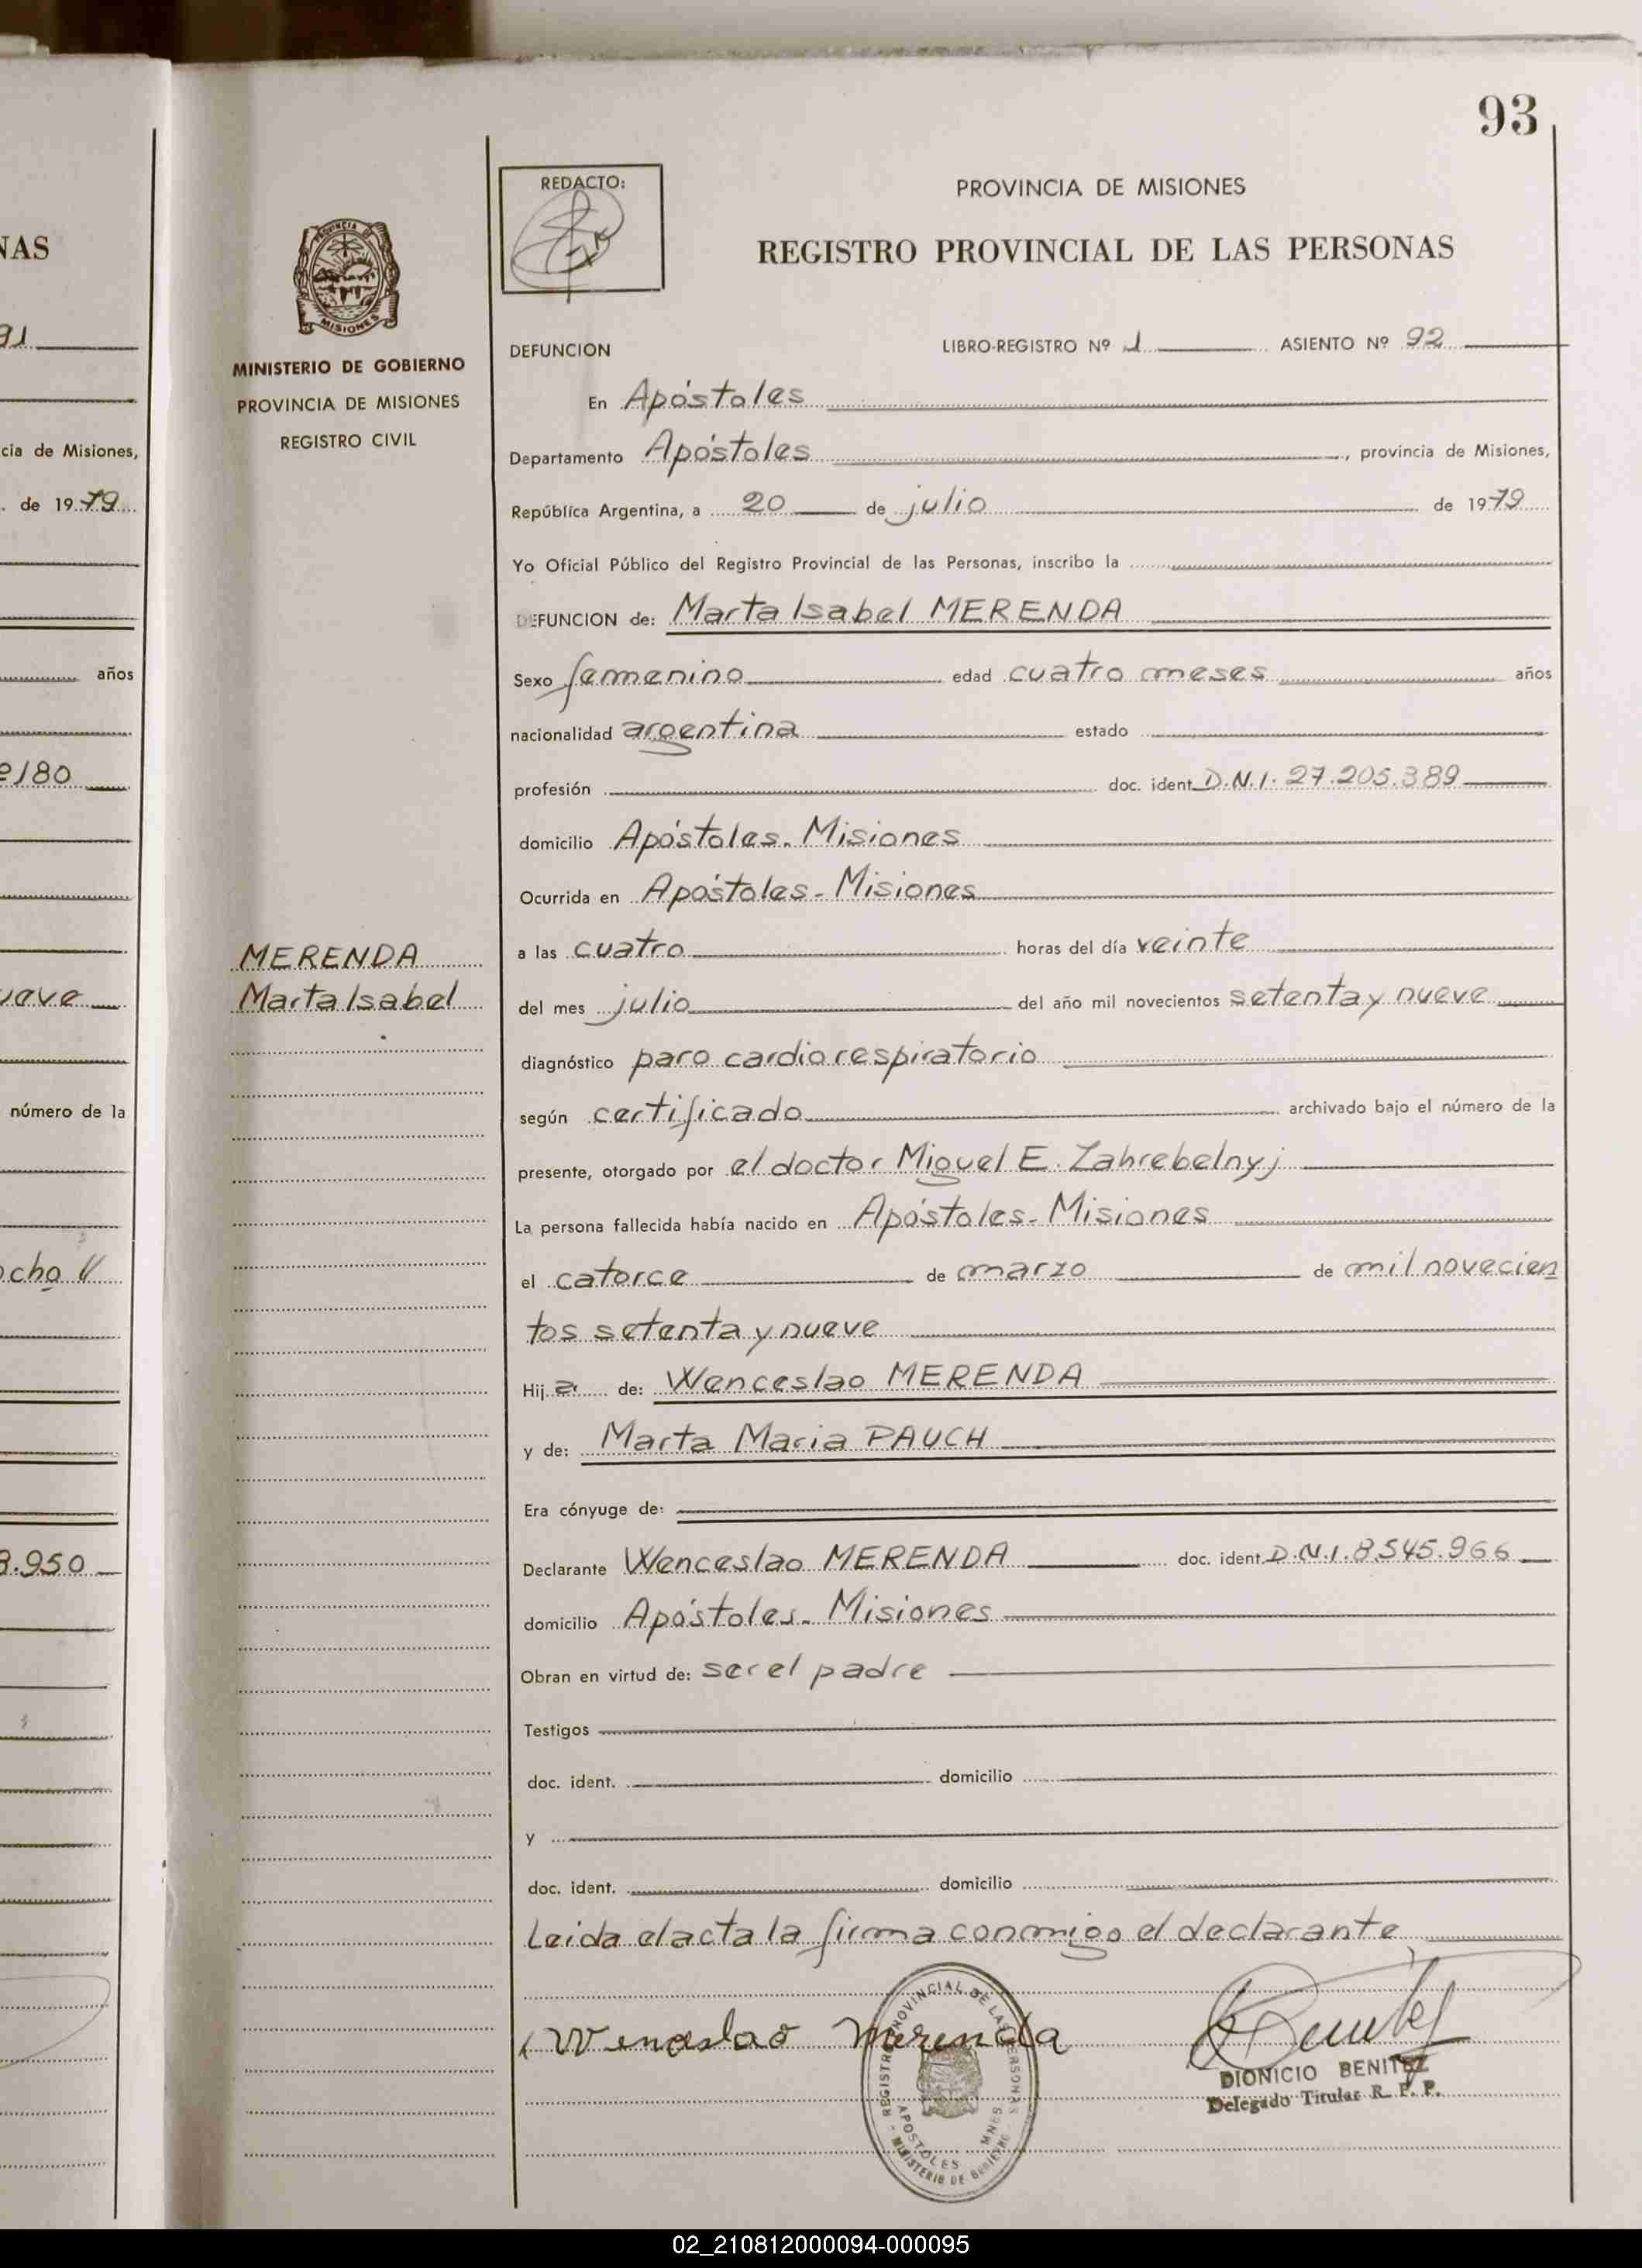 93
NAS
91
cia de Misiones,
de 1979
años
º180
ueve
número de la
ocho
8.950
PROVINCIA DE
MISIONES
MINISTERIO DE GOBIERNO
PROVINCIA DE MISIONES
REGISTRO CIVIL
MERENDA
Marta Isabel
REDACTO:
PROVINCIA DE MISIONES
REGISTRO PROVINCIAL DE LAS PERSONAS
DEFUNCION LIBRO-REGISTRO Nº 1 ASIENTO Nº 92
En Apóstoles
Departamento Apóstoles, provincia de Misiones,
República Argentina, a 20 de julio de 1979
Yo Oficial Público del Registro Provincial de las Personas, inscribo la
DEFUNCION de: Marta Isabel MERENDA
Sexo femenino edad cuatro meses años
nacionalidad argentina estado
profesión doc. ident. D.N.I. 27.205.389
domicilio Apóstoles. Misiones
Ocurrida en Apóstoles - Misiones
a las cuatro horas del día veinte
del mes julio del año mil novecientos setenta y nueve
diagnóstico paro cardiorespiratorio
según certificado archivado bajo el número de la
presente, otorgado por el doctor Miguel E. Zahrebelnyj
La persona fallecida había nacido en Apóstoles. Misiones
el catorce de marzo de mil novecien
tos setenta y nueve
Hija de: Wenceslao MERENDA
y de: Marta Maria PAUCH
Era cónyuge de:
Declarante Wenceslao MERENDA doc. ident. D.N.I. 8.545.966
domicilio Apóstoles. Misiones
Obran en virtud de: ser el padre
Testigos
doc. ident. domicilio
y
doc. ident. domicilio
Leida el acta la firma conmigo el declarante
Wenceslao Merenda
REGISTRO PROVINCIAL DE LAS PERSONAS
APOSTOLES MNES
MINISTERIO DE GOBIERNO
DIONICIO BENITEZ
Delegado Titular R. P. P.
02_210812000094-000095